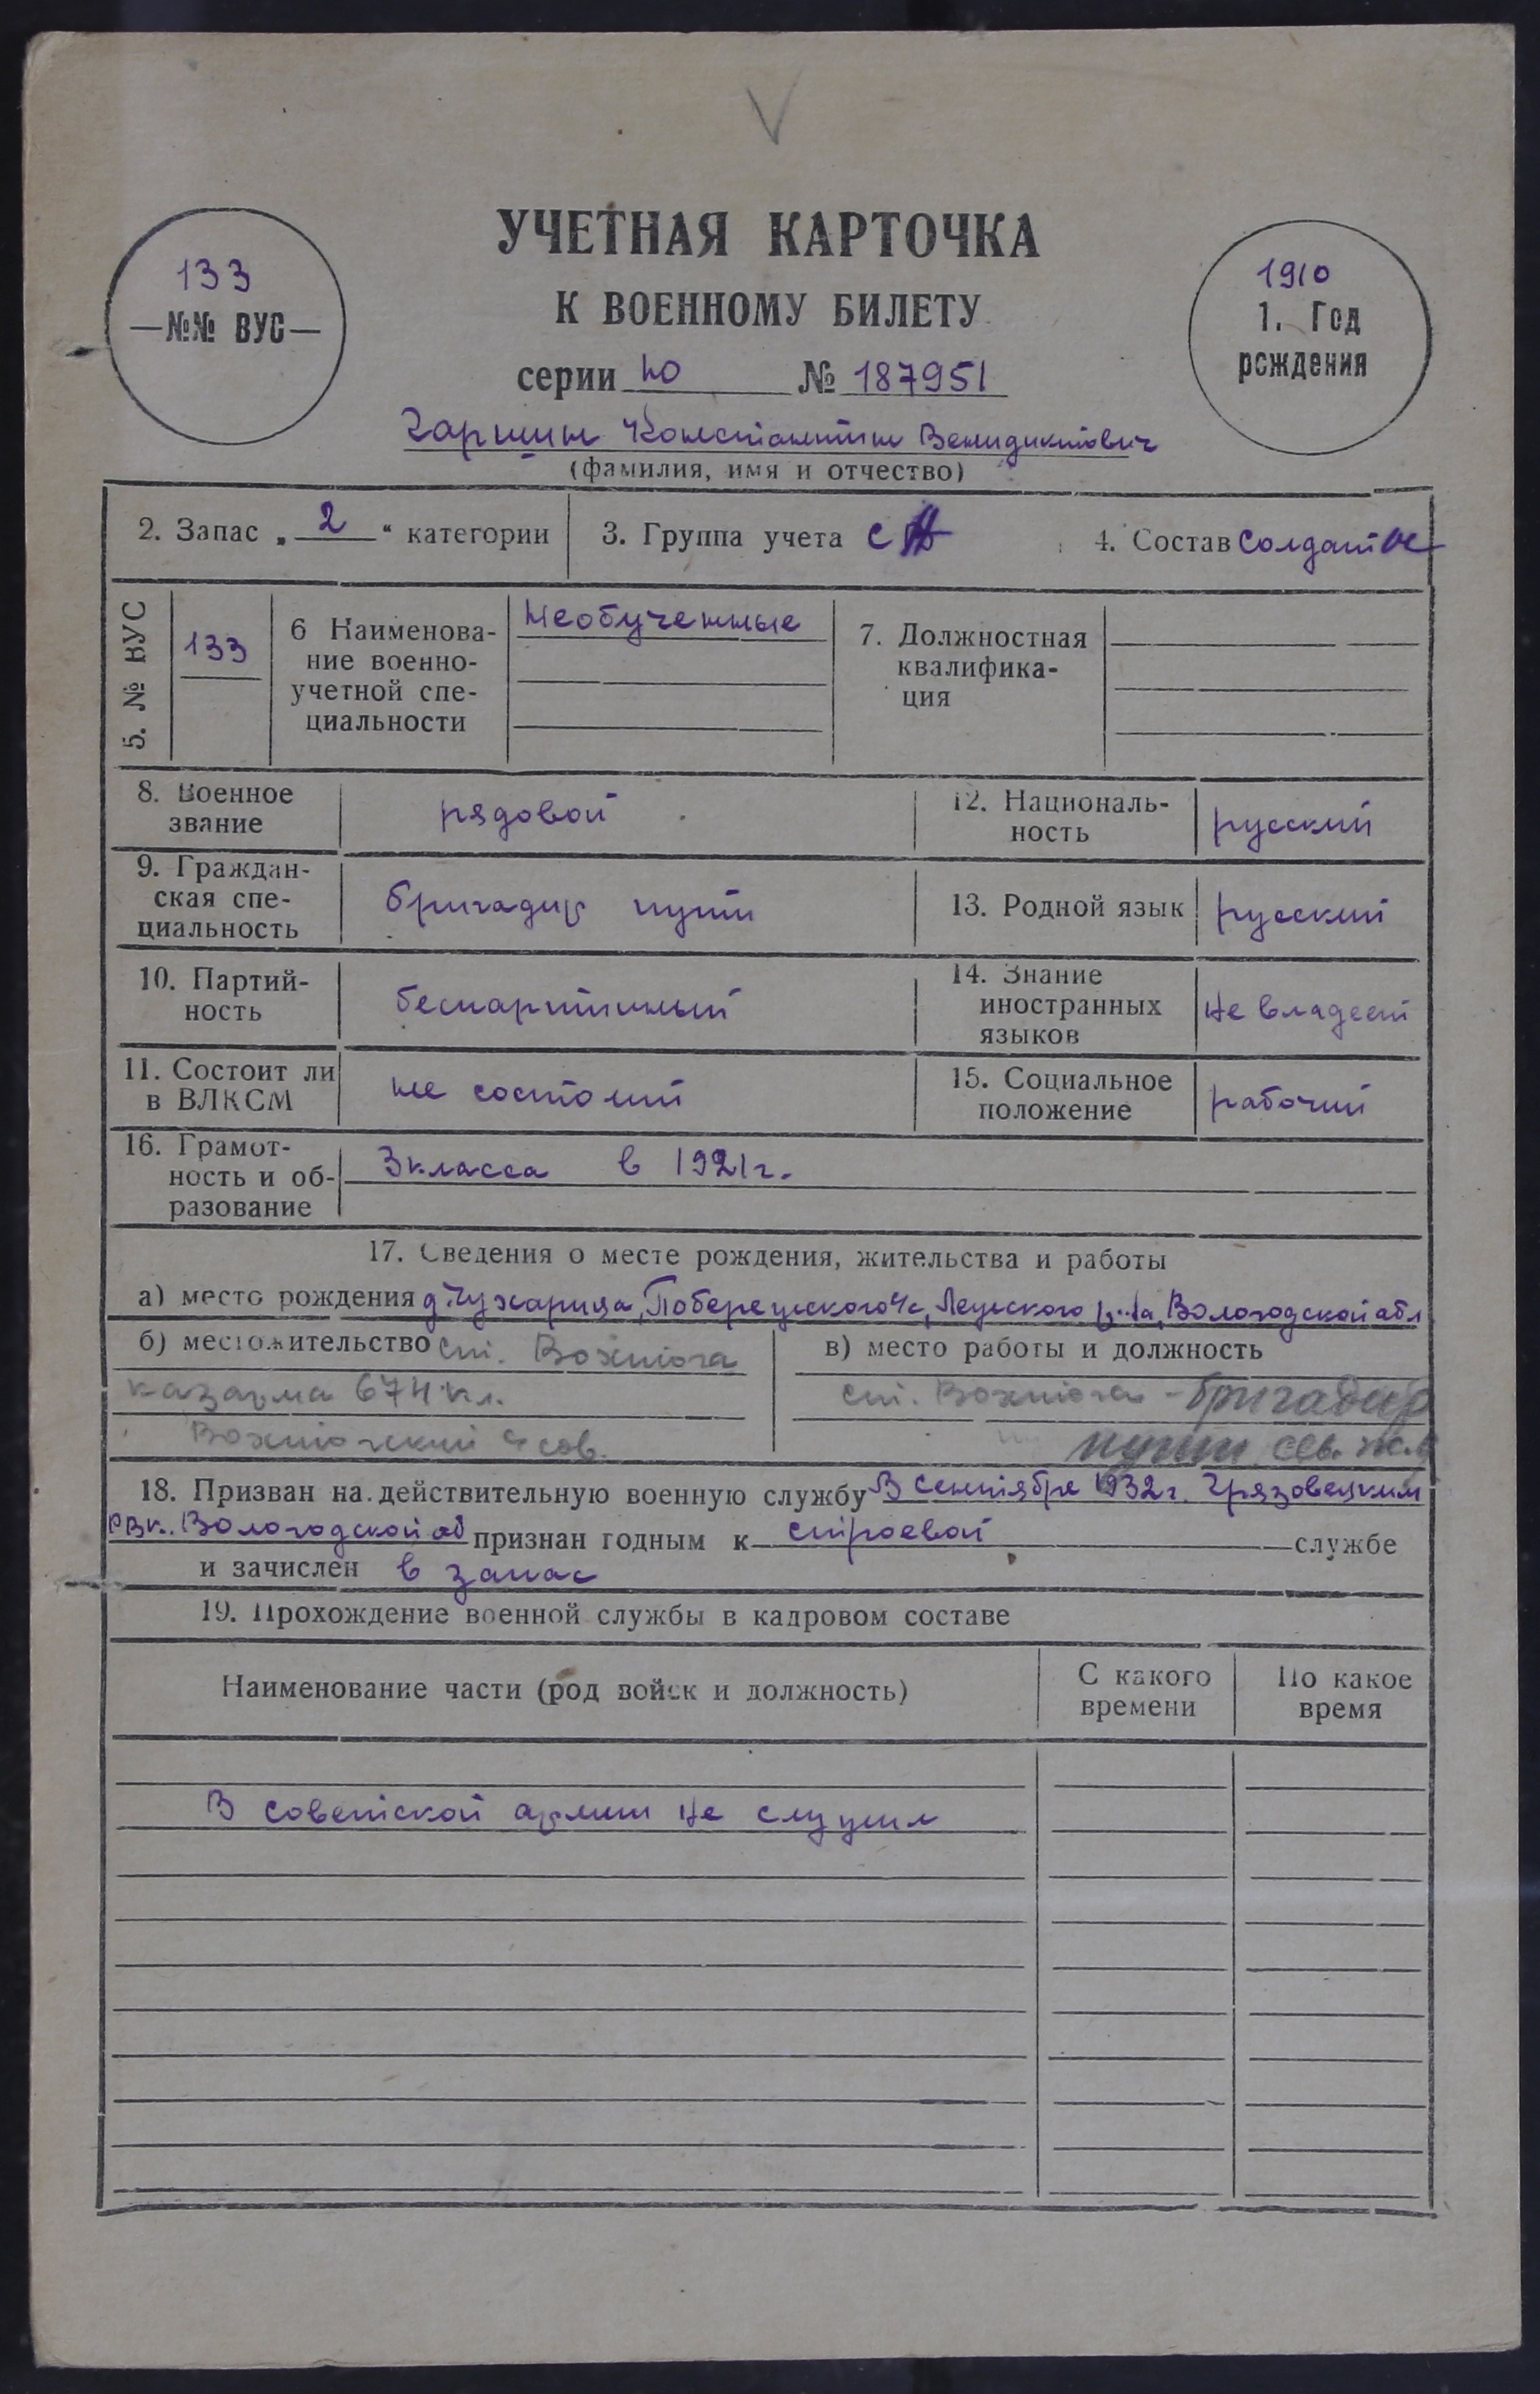 V
УЧЕТНАЯ КАРТОЧКА
К ВОЕННОМУ БИЛЕТУ
серии Ю № 187951
133
—№№ ВУС—
1910
1. Год
рождения
Гаршин Константин Венидиктович
(фамилия, имя и отчество)
2. Запас „ 2 “ категории
3. Группа учета СА
4. Состав Солдатск
5. № ВУС
133
6 Наименова-
ние военно-
учетной спе-
циальности
Необученные
7. Должностная
квалифика-
ция
8. Военное
звание
рядовой
12. Националь-
ность
русский
9. Граждан-
ская спе-
циальность
бригадир пути
13. Родной язык
русский
10. Партий-
ность
беспартийный
14. Знание
иностранных
языков
не владеет
11. Состоит ли
в ВЛКСМ
не состоит
15. Социальное
положение
рабочий
16. Грамот-
ность и об-
разование
3 класса в 1921 г.
17. Сведения о месте рождения, жительства и работы
а) место рождения д. Чухарица, с/с, р-на, Вологодской обл
б) местожительство ст. Вохтога
казарма 674 кл.
Вохтожский с сов.
в) место работы и должность
ст. Вохтога - бригадир
пути сев. ж.д
18. Призван на действительную военную службу В сентябре 1932 г. Грязовецким
РВК. Вологодской об признан годным к строевой службе
и зачислен в запас
19. Прохождение военной службы в кадровом составе
Наименование части (род войск и должность)
С какого
времени
По какое
время
В советской армии не служил